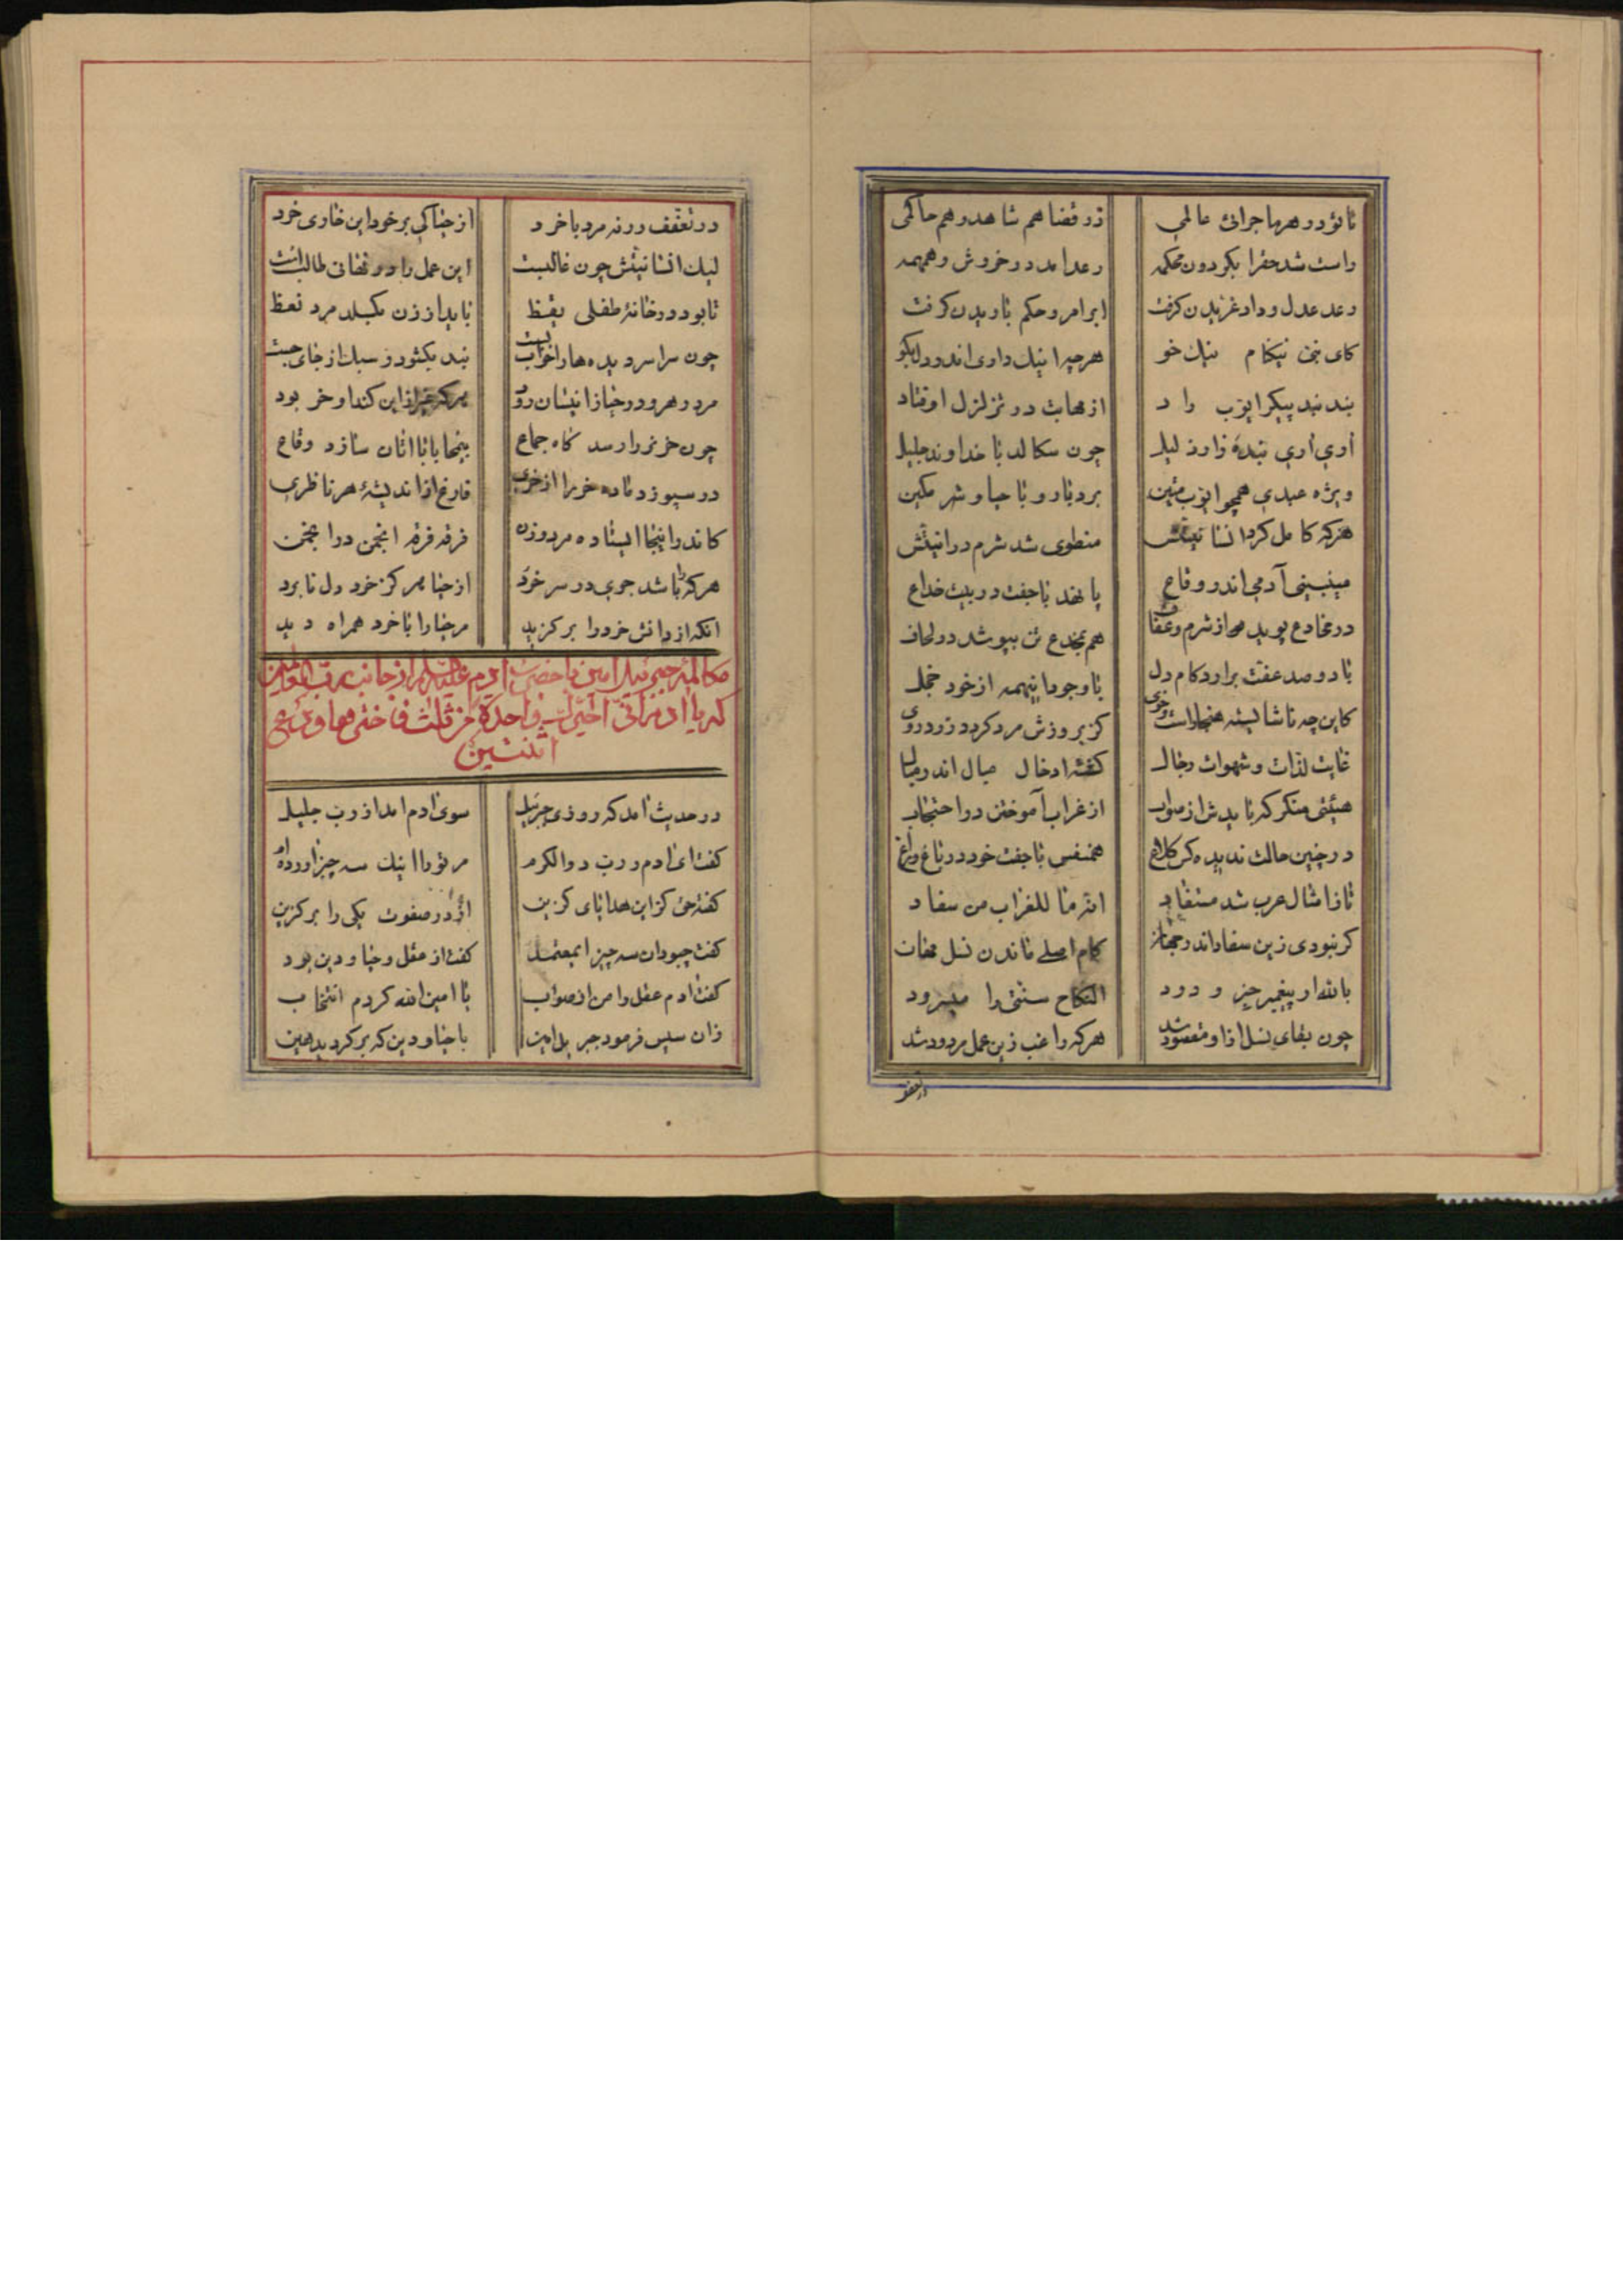 تا بود در هر ماجرائی عالمی در قضا هم شاهد و هم حاکمی
راست شد حقرا بگردون محکمه رعد امد در خروش و همهمه
رعد عدل و داد غریدن گرفت ابر امر و حکم باریدن گرفت
کای نبی نیکنام نیک خو هر چرا نیک داری اندر دل بگو
بند بند پیکر ایوب راد از مهابت در تزلزل اوفتاد
اری اری بنده زار و ذلیل چون سکالد با خداوند جلیل
ویژه عبدی همچو ایوب متین بردبار و با حیا و شرمگین
هرکه کامل کرد انسانیتش منطوی شد شرم در انیتش
میبینی آدمی اندر وقاع پا نهد با جفت در بیت خداع
در مخادع پوید از شرم و عفاف هم بمخدع تن بپوشد در لحاف
با دو صد عفت برارد کام دل با وجود اینهمه از خود خجل
کاین چه ناشایسته هنجار است و خوی کز بروزش مرد گردد زرد روی
غایت لذات و شهوات رجال گفته ادخال مبال اندر مبال
هیئتی منکر که نایدش از صواب از غراب آموختن در احتجاب
در چنین حالت ندیده کس کلاغ همنفس با جفت خود در باغ و راغ
تا ز امثال عرب شد مستفاد انه ما للغراب من سفاد
گر نبودی زین سفاد اندر کام اصلی ماندن نسل
بالله ار پیغمبر و درود النکاح سنتی را میسرود
چون بقای نسل ازاو مقصود شد هرکه راغب زین عمل مردود شد
در تعفف
در تعفف ورنه مرد با خرد از حیا کی بر خود این خواری خرد
لیک انسانیتش چون غالبست این عمل را در طالب است
تا بود در خانه طفلی یقظ ناید از زن مرد
چون سراسر دیده ها را خواب بست بند بگشود و سبک از جای جست
مرد رهرو در حیا زانیسان رود هرکه جز این کند او خر بود
چون خر نر را رسد گاه جماع بیمحابا با اتان سازد وقاع
در سپوزد ماده خر را از خری فارغ از اندیشه هر ناظری
کاندر اینجا ایستاده مرد و زن فرقه فرقه انجمن در انجمن
هرکه را باشد جوی در سر خرد از حیا هرگز خود دل نابرد
انکه از دانش خرد را برگزید مر حیا را با خرد همراه دید
مکالمه جبرئیل امین با حضرت ادم علیه السلام از جانب رب العالمین
که یا ادم انی اخیرک واحدة من ثلث فاختر ها و دع
اثنتین
در حدیث امد که روزی جبرئیل سوی ادم امد از رب جلیل
گفت ای ادم ز رب ذو الکرم مر تو را اینک سه چیز اورده ام
گفته حق کز این هدایای گزین از در صفوت یکی را برگزین
گفت چبود ان سه چیز ای معتمد گفت از عقل و حیا و دین بود
گفت ادم عقل را من از صواب با امین الله کردم انتخاب
زان سپس فرمود جبریل امین با حیا و دین که برگردید هین